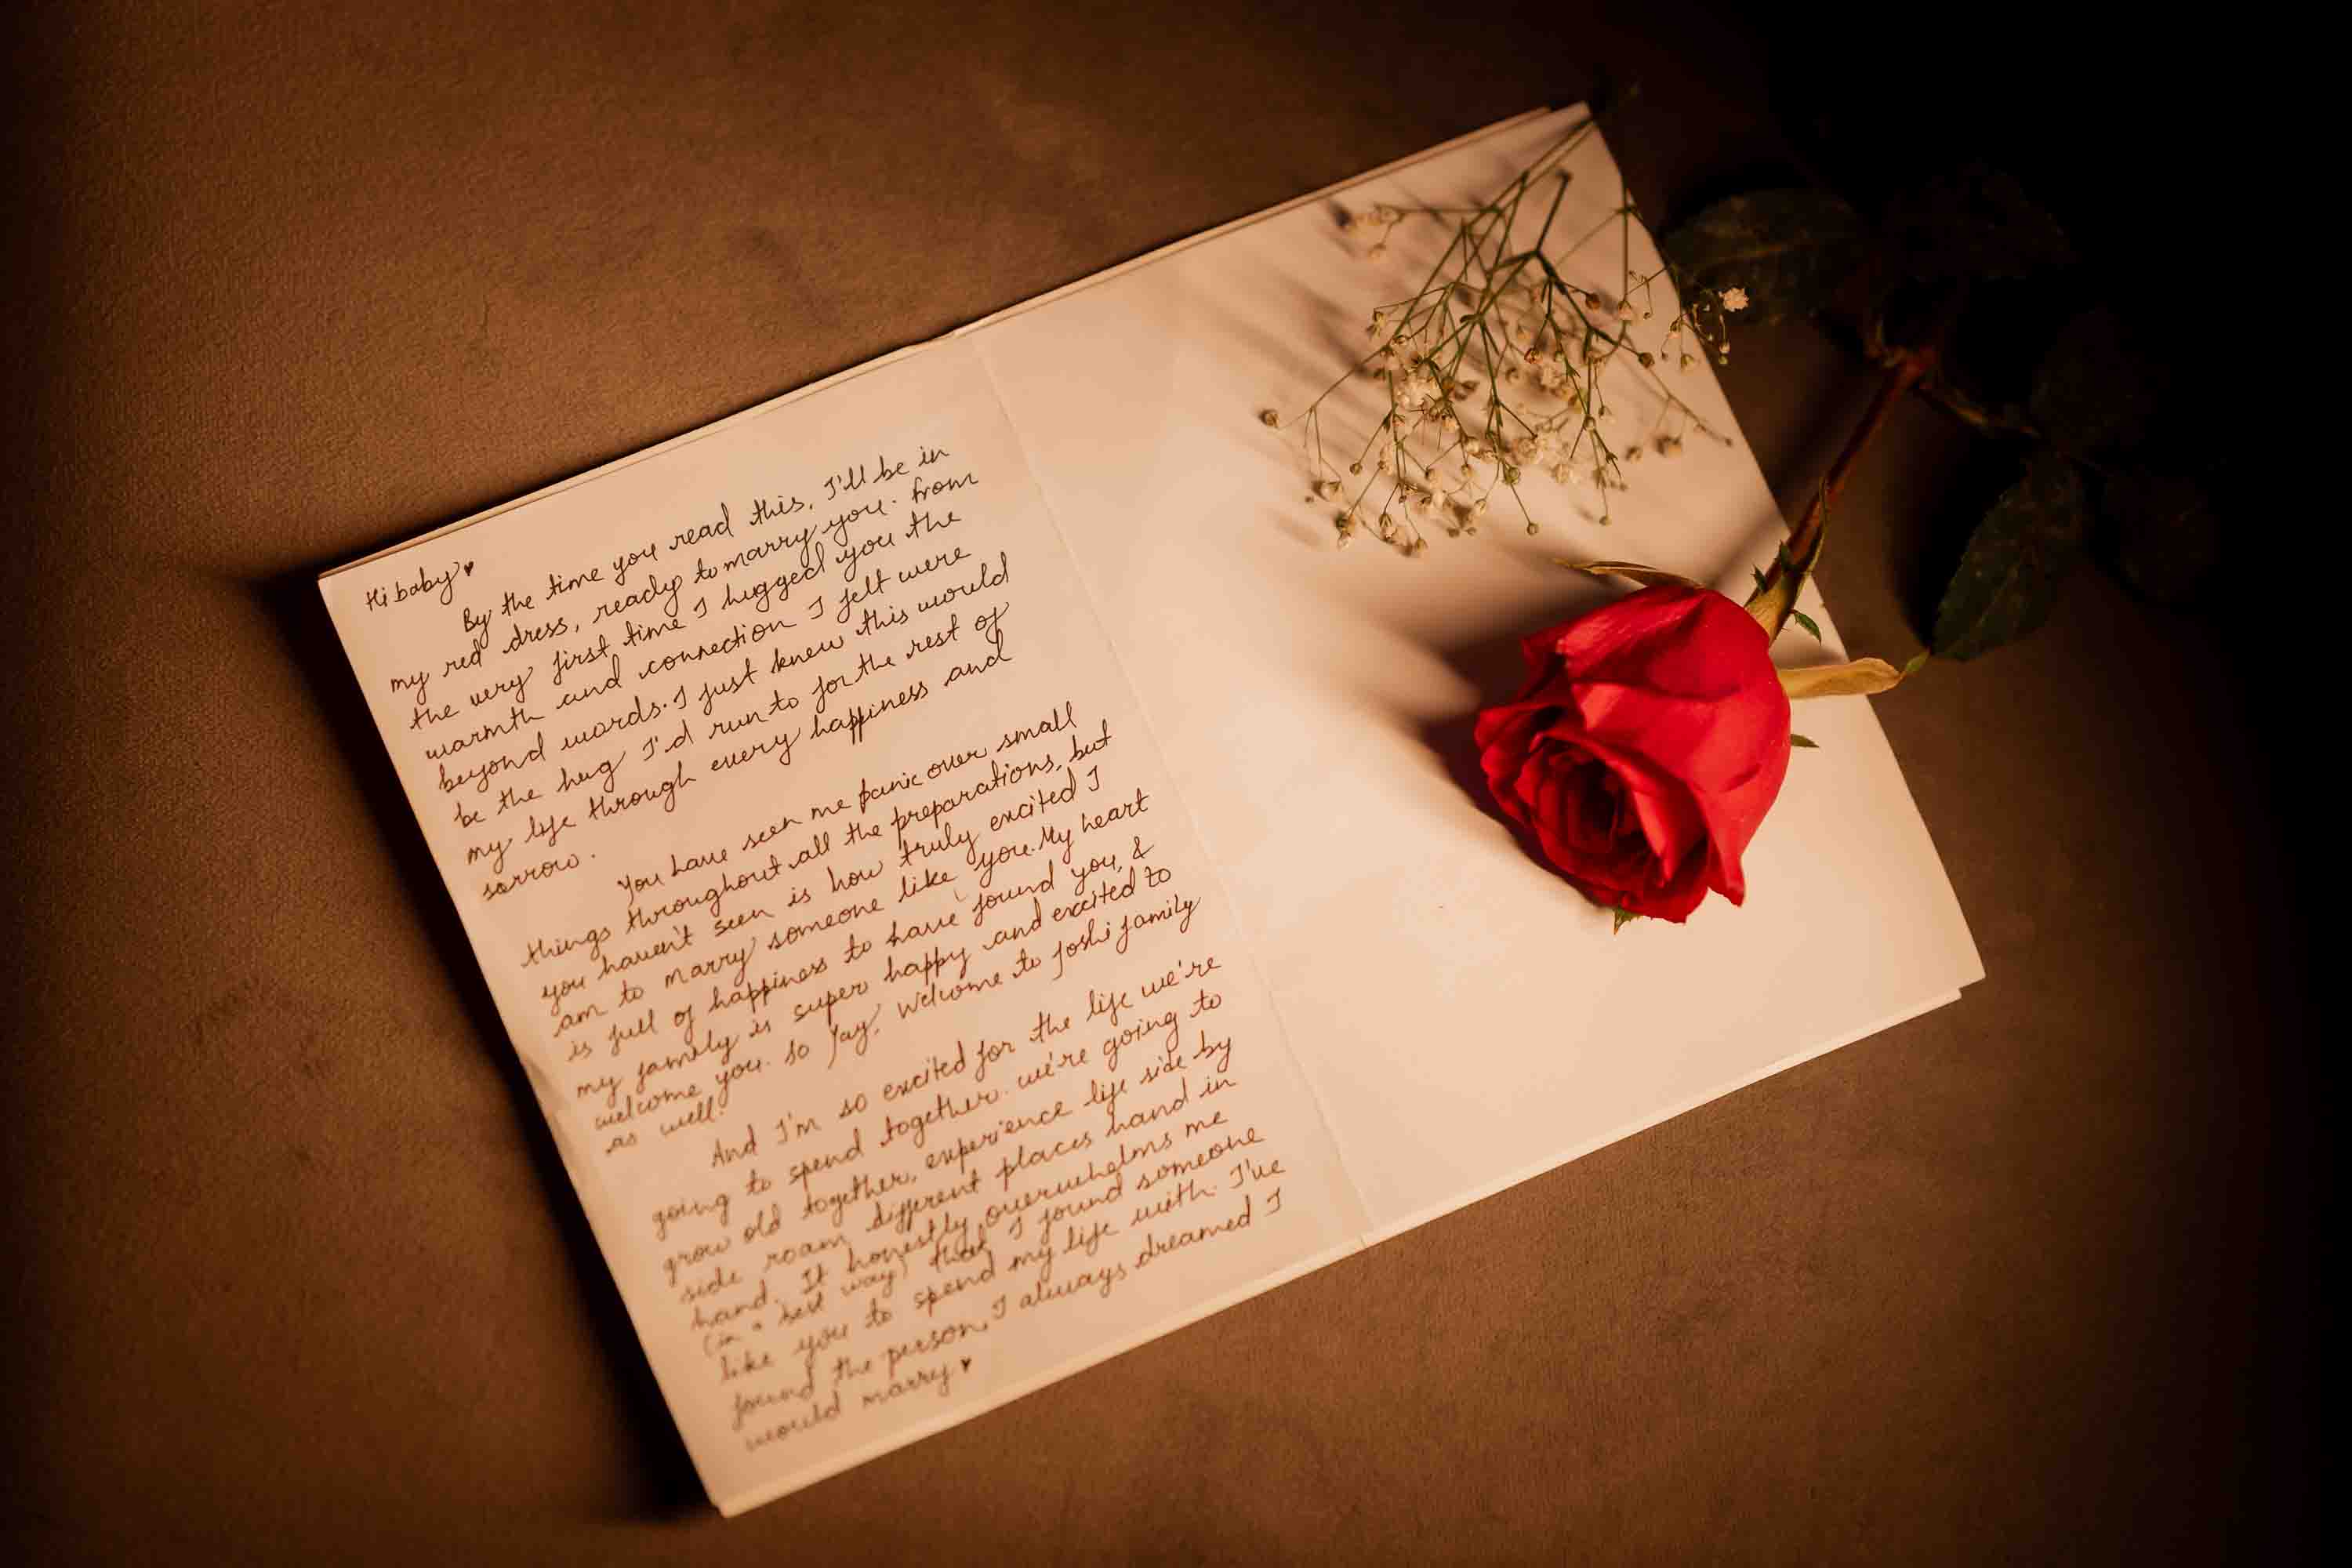 Hi baby ♥
By the time you read this, I'll be in
my red dress, ready to marry you. From
the very first time I hugged you the
warmth and connection I felt were
beyond words. I just knew this would
be the hug I'd run to for the rest of
my life through every happiness and
sorrow.
You have seen me panic over small
things throughout all the preparations, but
you haven't seen is how truly excited I
am to marry someone like you. My heart
is full of happiness to have found you, &
my family is super happy and excited to
welcome you. So Jay, Welcome to Joshi family
as well.
And I'm so excited for the life we're
going to spend together. we're going to
grow old together, experience life side by
side roam different places hand in
hand. It honestly overwhelms me
(in a best way) that I found someone
like you to spend my life with. I've
found the person, I always dreamed I
would marry ♥